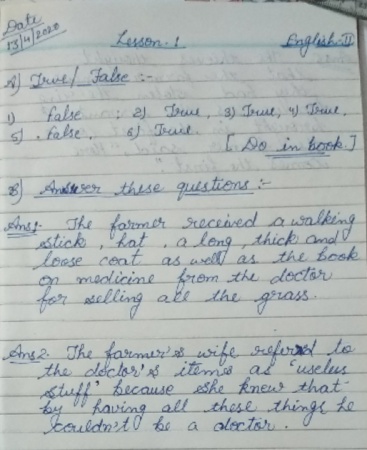 Date
13/4/2020
Lesson-1 English-II
A) True/False:-
1) false ; 2) True, 3) True, 4) True,
5) False, 6) True.
[Do in book.]
B) Answer these questions:-
Ans1. The farmer received a walking
stick, hat, a long, thick and
loose coat as well as the book
on medicine from the doctor
for selling all the grass.
Ans2. The farmer's wife referred to
the doctor's items as 'useless
stuff' because she knew that
by having all these things he
couldn't be a doctor.